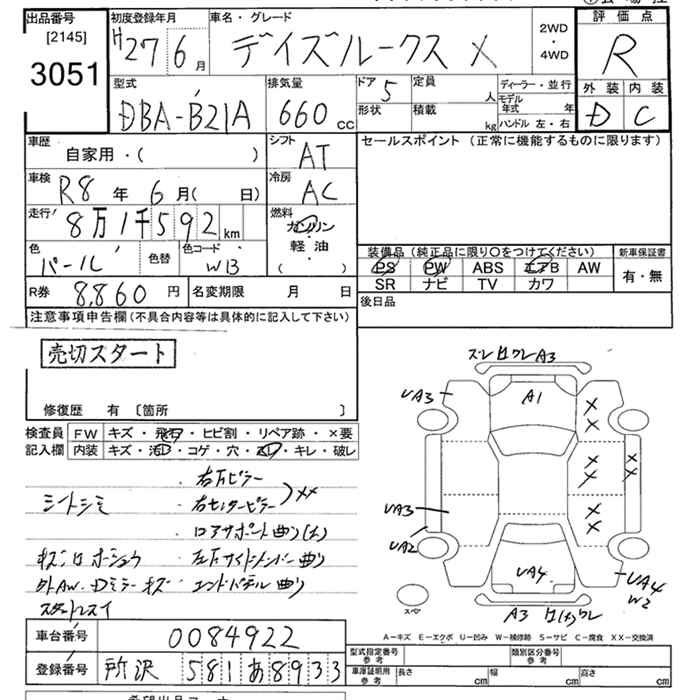 出品番号 初度登録年月 車名・グレード 評価点
[2145] H27 6月 デイズルークス X 2WD・4WD R
3051
型式 排気量 ドア 5 定員 人 ディーラー・並行 外装 内装
DBA-B21A 660cc 形状 積載 kg モデル年式 年 D C
ハンドル 左・右
車歴 シフト セールスポイント (正常に機能するものに限ります)
自家用・( ) AT
車検 冷房
R8年 6月( 日) AC
走行 燃料
8万1千592km ガソリン・軽油・( )
色 色替 色コード 装備品 (純正品に限り○をつけてください) 新車保証書
パール W13 PS PW ABS エアB AW 有・無
SR ナビ TV カワ
R券 8,860円 名変期限 月 日 後日品
注意事項申告欄(不具合内容等は具体的に記入して下さい)
売切スタート
修復歴 有 〔箇所 〕
検査員 FW キズ・飛石・ヒビ割・リペア跡・×要
記入欄 内装 キズ・汚れ・コゲ・穴・スレ・キレ・破レ
A3
UA3 A1
右Fピラー
シートシミ 右センターピラー XX
UA3
コアサポート曲り(大)
UA2
左フサイドメンバー曲り
UA4 UA4
W2
エンドパネル曲り
スペア
A3
A-キズ E-エクボ U-凹み W-補修跡 S-サビ C-腐食 XX-交換済
車台番号 0084922 型式指定番号 参考 類別区分番号 参考
登録番号 所沢 581 あ 8933 車庫証明用 参考 長さ cm 幅 cm 高さ cm